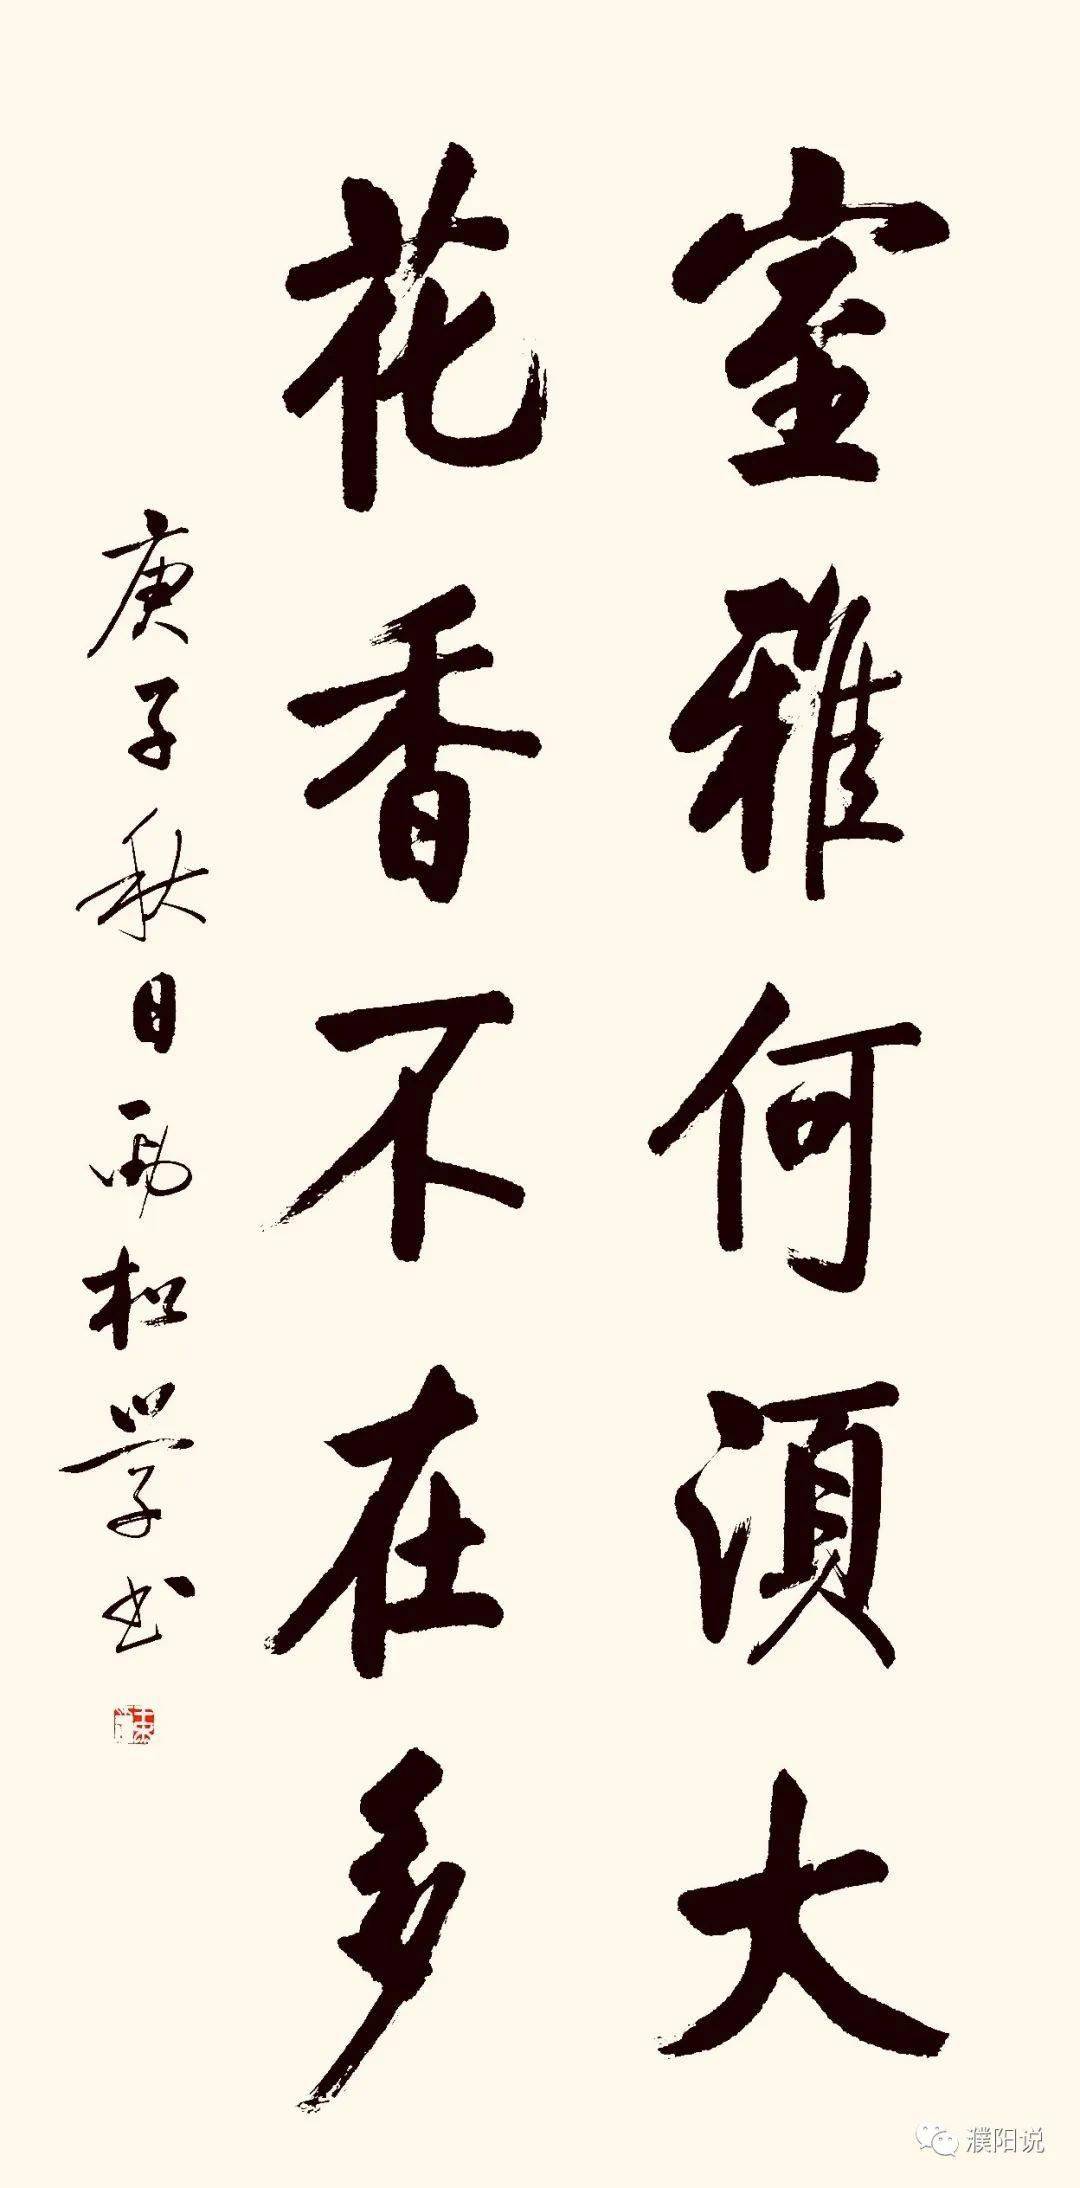 室雅何須大
花香不在多
庚子秋日雨松學书
濮阳说